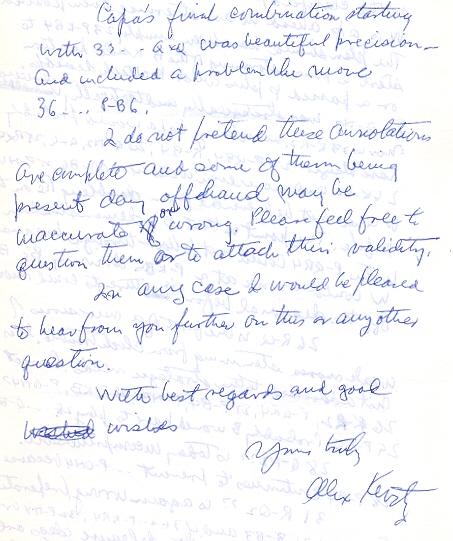 Capa's final combination starting
with 33 - .. QxQ was beautiful precision -
and included a problem like move
36 .... P-B6.
I do not pretend these annotations
are complete and some of them being
present day offhand may be
inaccurate or wrong. Please feel free to
question them or to attack their validity.
In any case I would be pleased
to hear from you further on this or any other
question.
With best regards and good
wishes
Yours truly
Alex